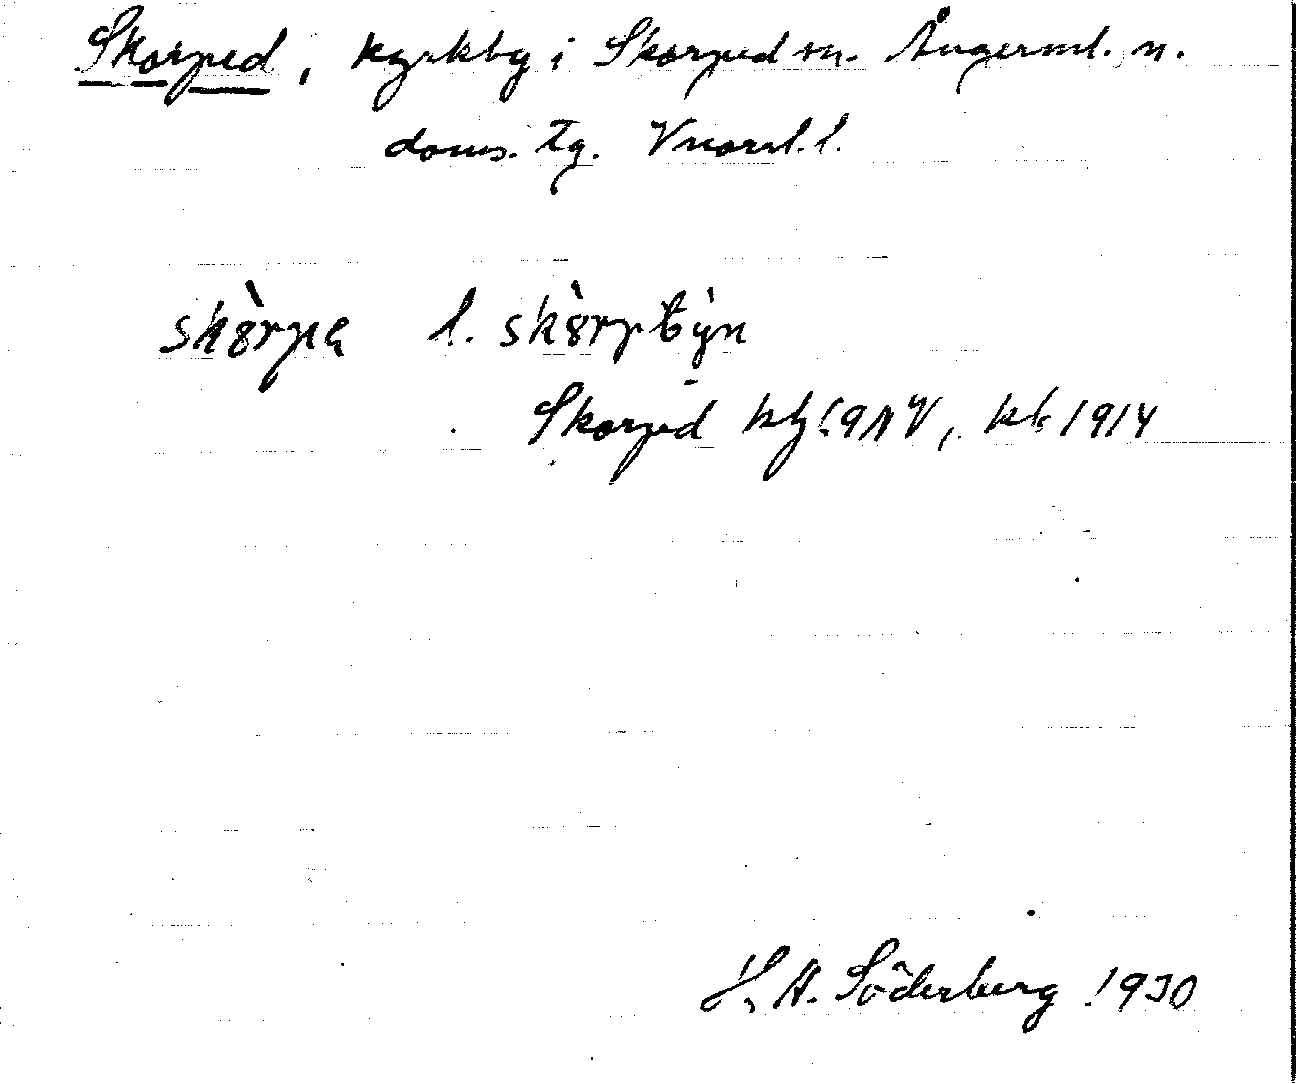 Skorped, kyrkby i Skorped sn. Ångerml. n.
doms. tg. Vnorrl. l.
skòrpa l. skòrpbýn
Skorped 1914
H. A. Söderberg 1930